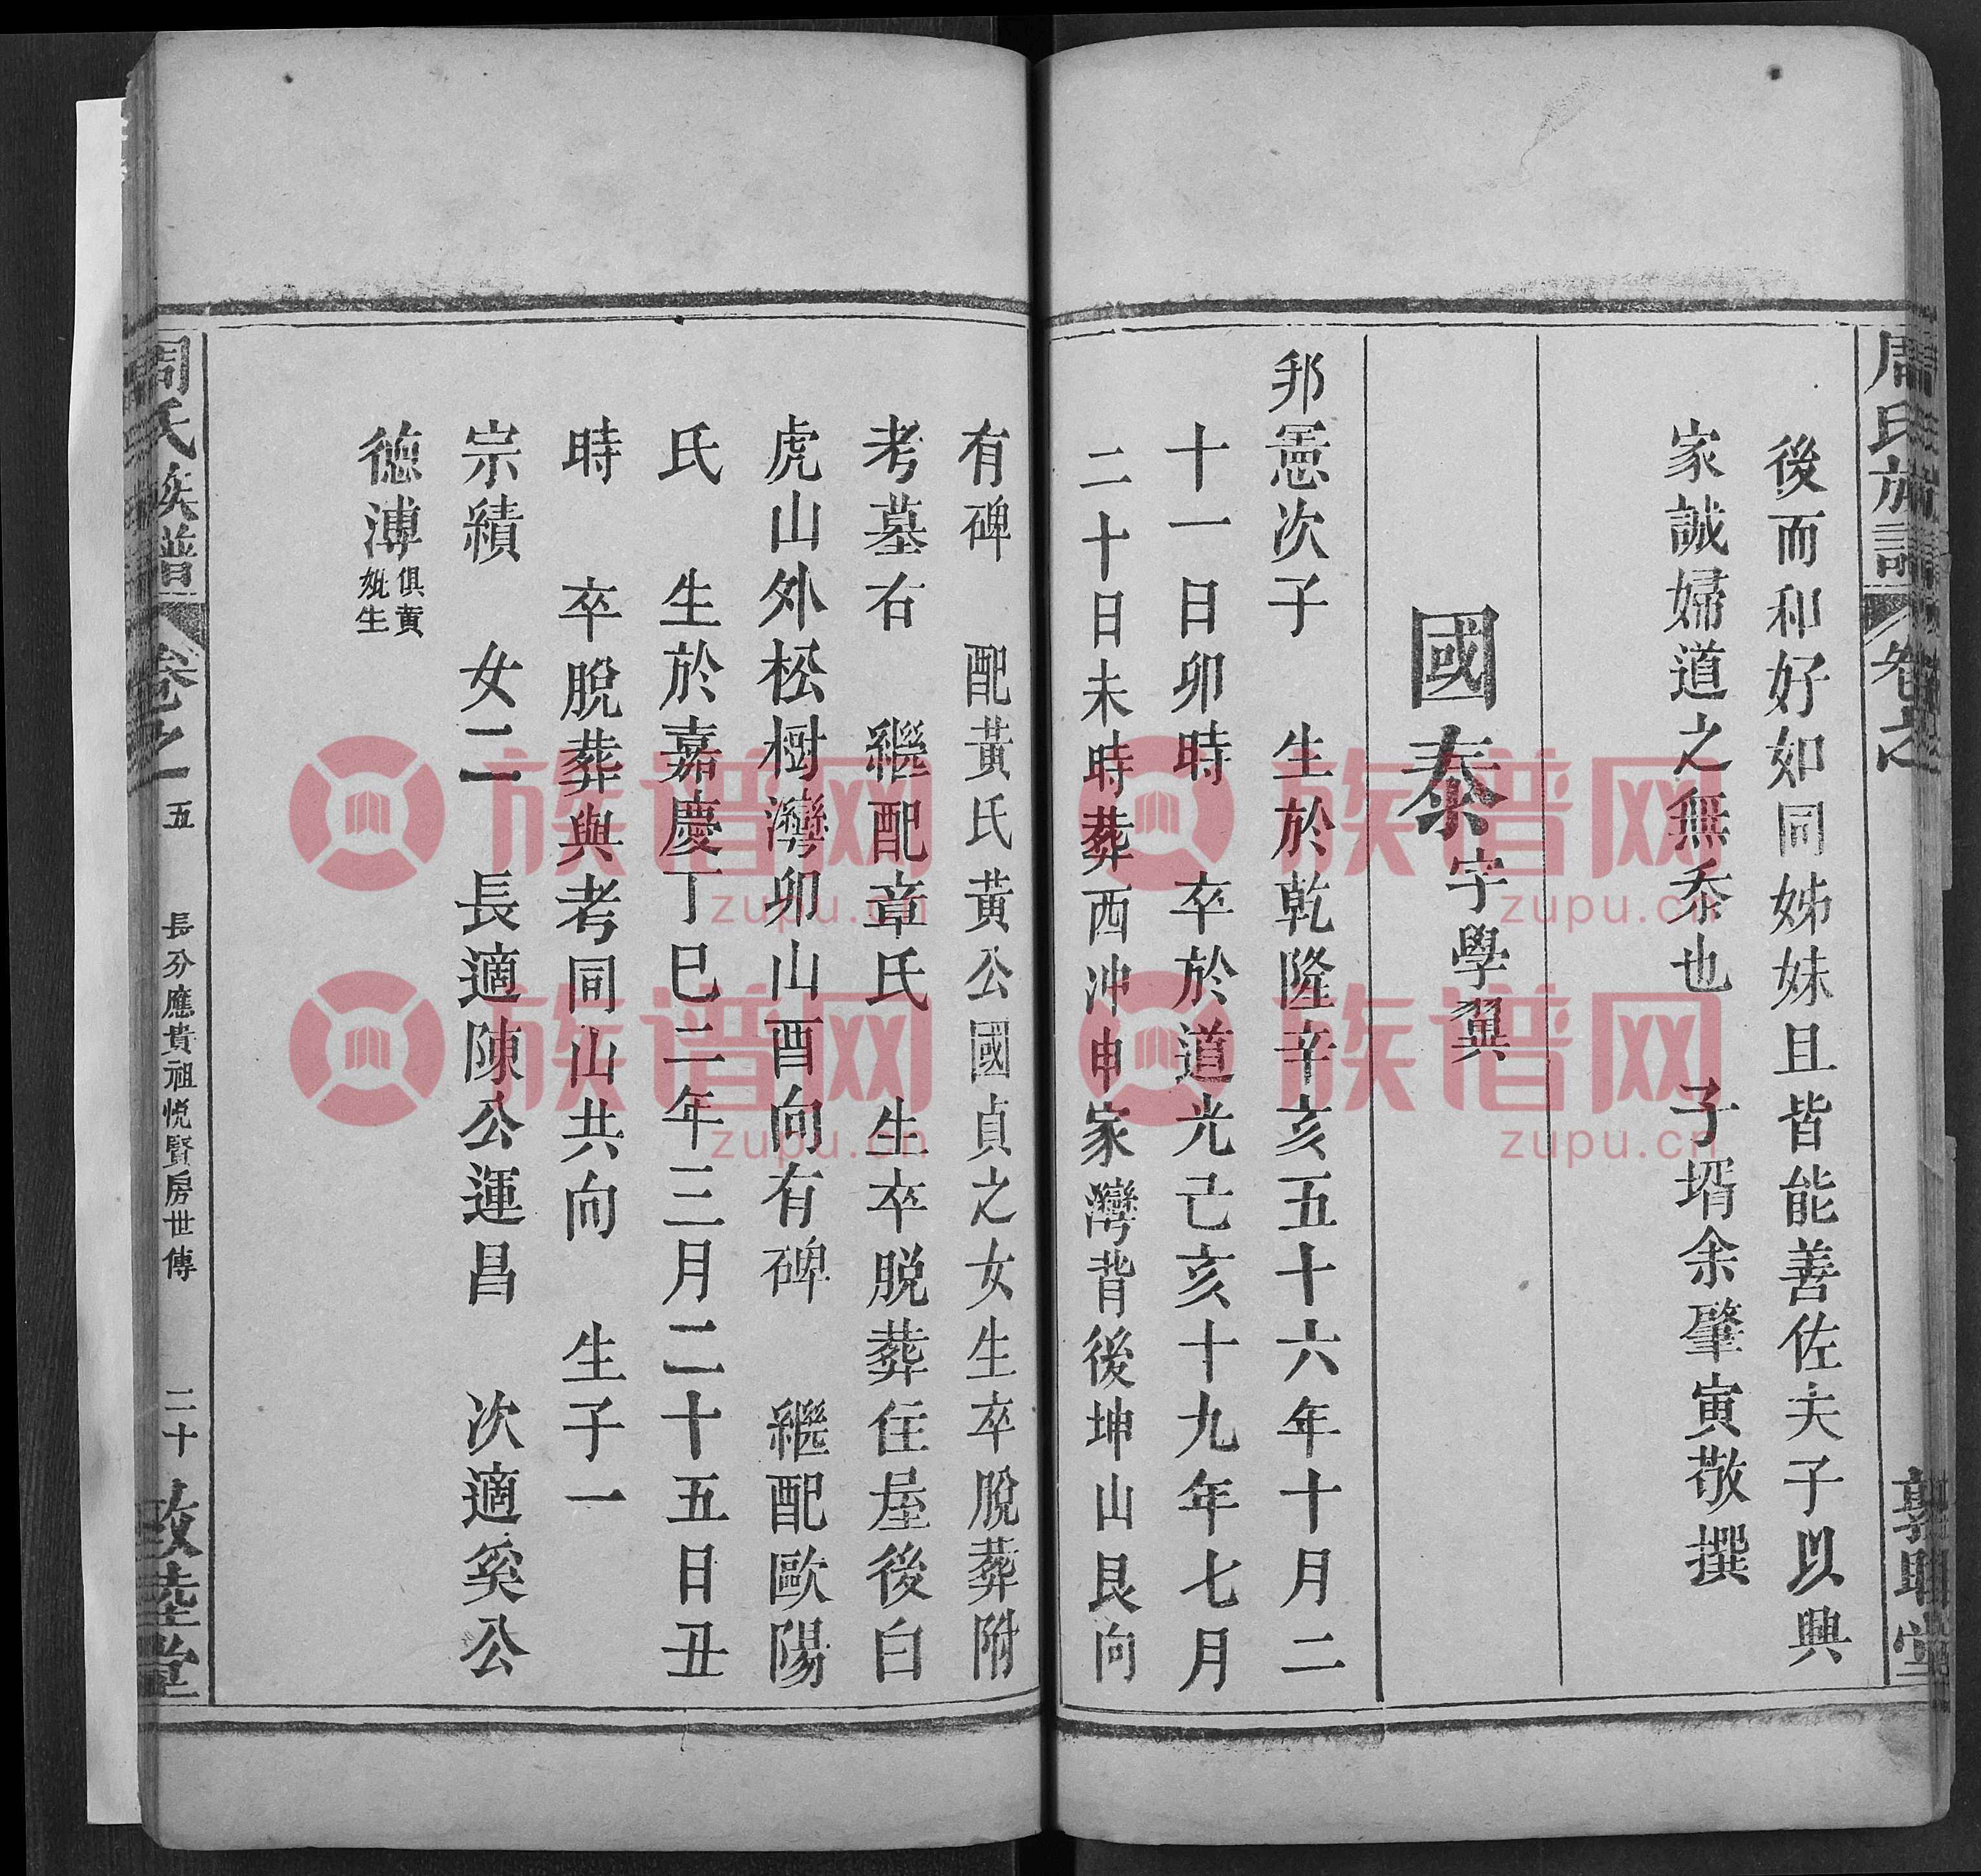 後而和好如同姊妹且皆能善佐夫子以興
家誠婦道之無忝也　子壻余肇寅敬撰
國泰字學翼
邦憲次子　生於乾隆辛亥五十六年十月二
十一日卯時　卒於道光己亥十九年七月
二十日未時葬西冲申家灣背後坤山艮向
有碑　配黃氏黃公國貞之女生卒脫葬附
考墓右　繼配章氏　生卒脫葬住屋後白
虎山外松樹灣卯山酉向有碑　繼配歐陽
氏　生於嘉慶丁巳二年三月二十五日丑
時　卒脫葬與考同山共向　生子一
宗績　女二　長適陳公運昌　次適奚公
德溥俱黃
妣生
周氏族譜
卷之一
五
長分應貴祖悅賢房世傳
二十
敦睦堂
族谱网
zupu.cn
族谱网
zupu.cn
族谱网
zupu.cn
族谱网
zupu.cn